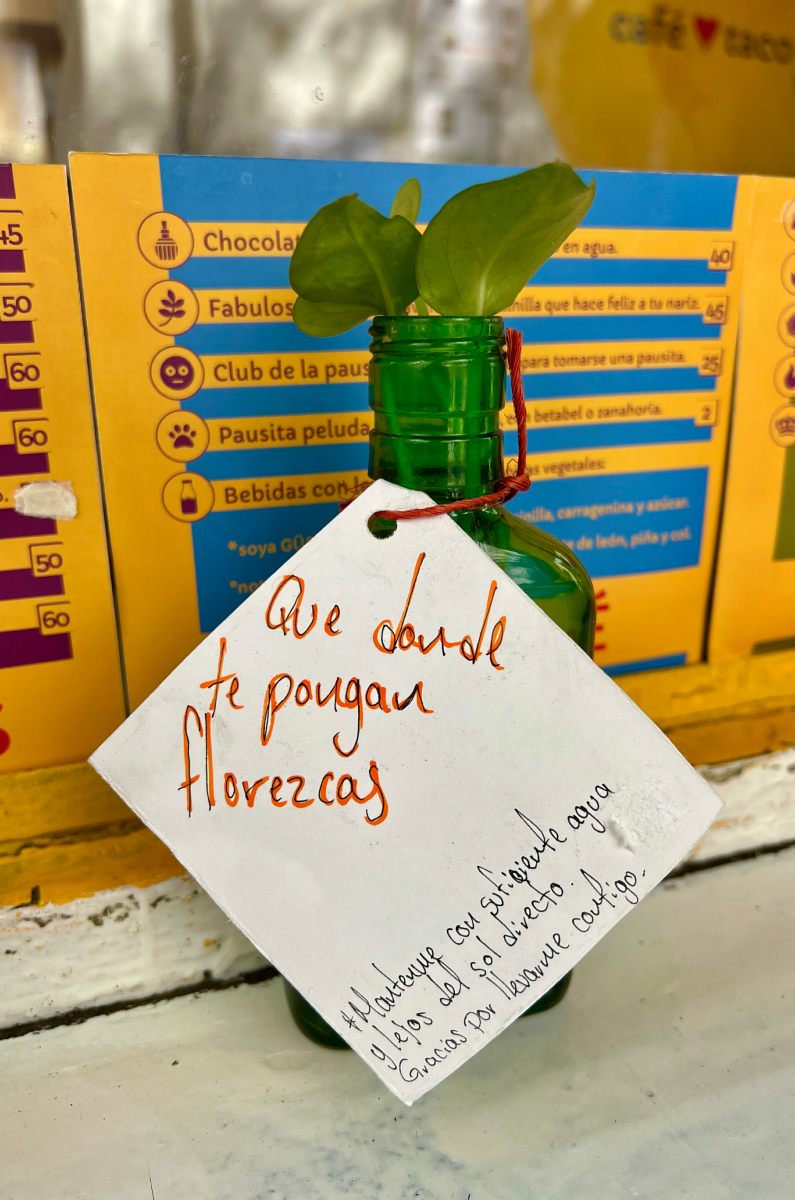 café ♥ taco
45
50
60
60
50
60
Chocolat en agua. 40
Fabulos nilla que hace feliz a tu nariz. 45
Club de la paus para tomarse una pausita. 25
Pausita peluda betabel o zanahoria. 2
Bebidas con vegetales:
nilla, carragenina y azúcar.
*soya de león, piña y col.
Que donde
te pongan
florezcas
#Mantenme con suficiente agua
y lejos del sol directo.
Gracias por llevarme contigo.